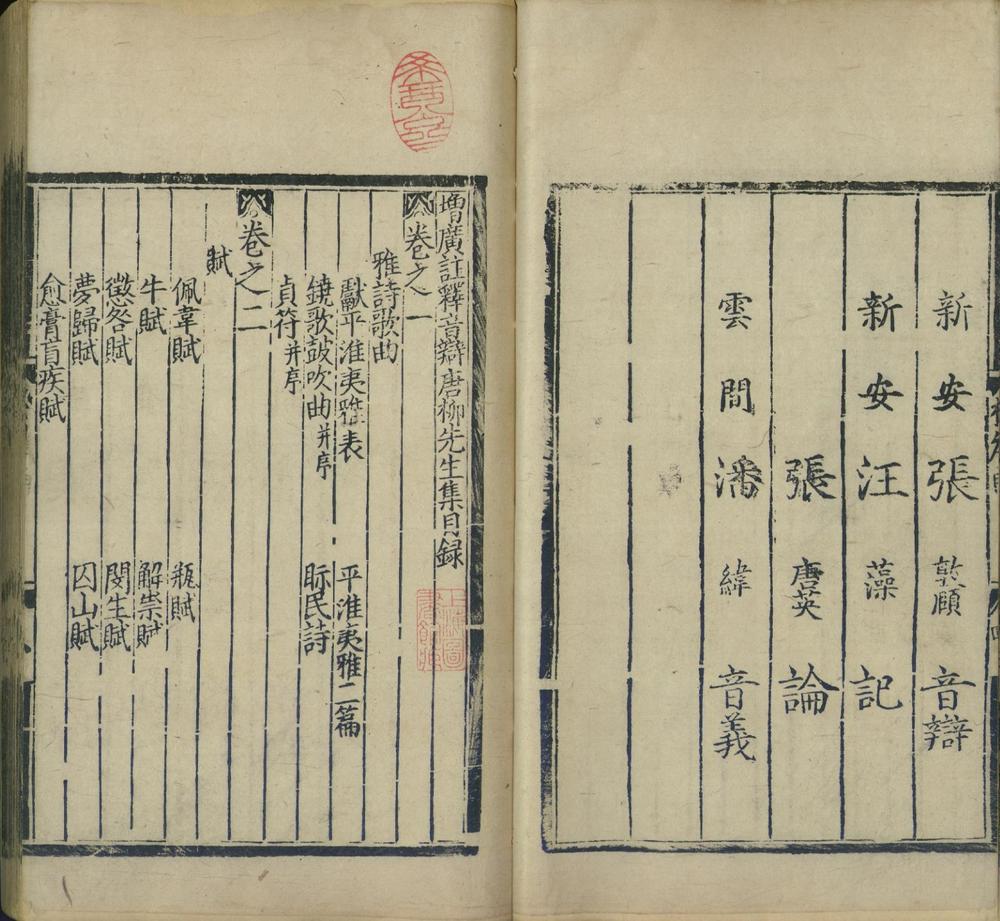 新安張敦頤音辯
新安汪藻記
張唐英論
雲間潘緯音義
增廣註釋音辯唐柳先生集目録
卷之一
雅詩歌曲
獻平淮夷雅表 平淮夷雅二篇
鐃歌鼓吹曲并序 眎民詩
貞符并序
卷之二
賦
佩韋賦 瓶賦
牛賦 解祟賦
懲咎賦 閔生賦
夢歸賦 囚山賦
愈膏肓疾賦